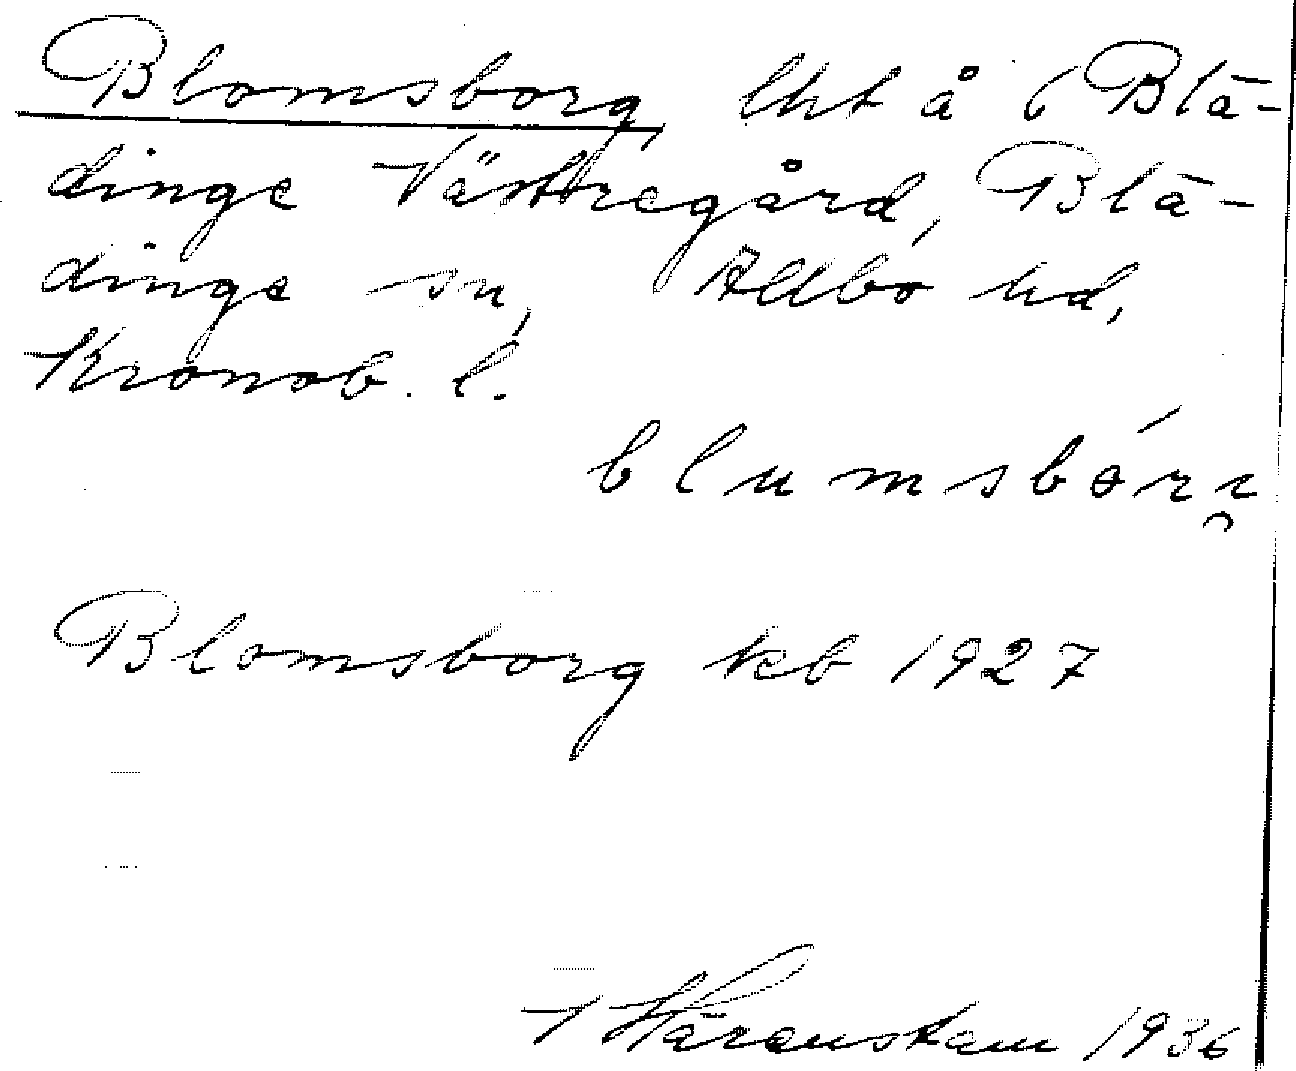 Blomsborg, lht å 6 Blä-
dinge Västregård, Blä-
dinge sn, Allbo hd,
Kronob. l.
blumsbórı̯
Blomsborg kb 1927
1936